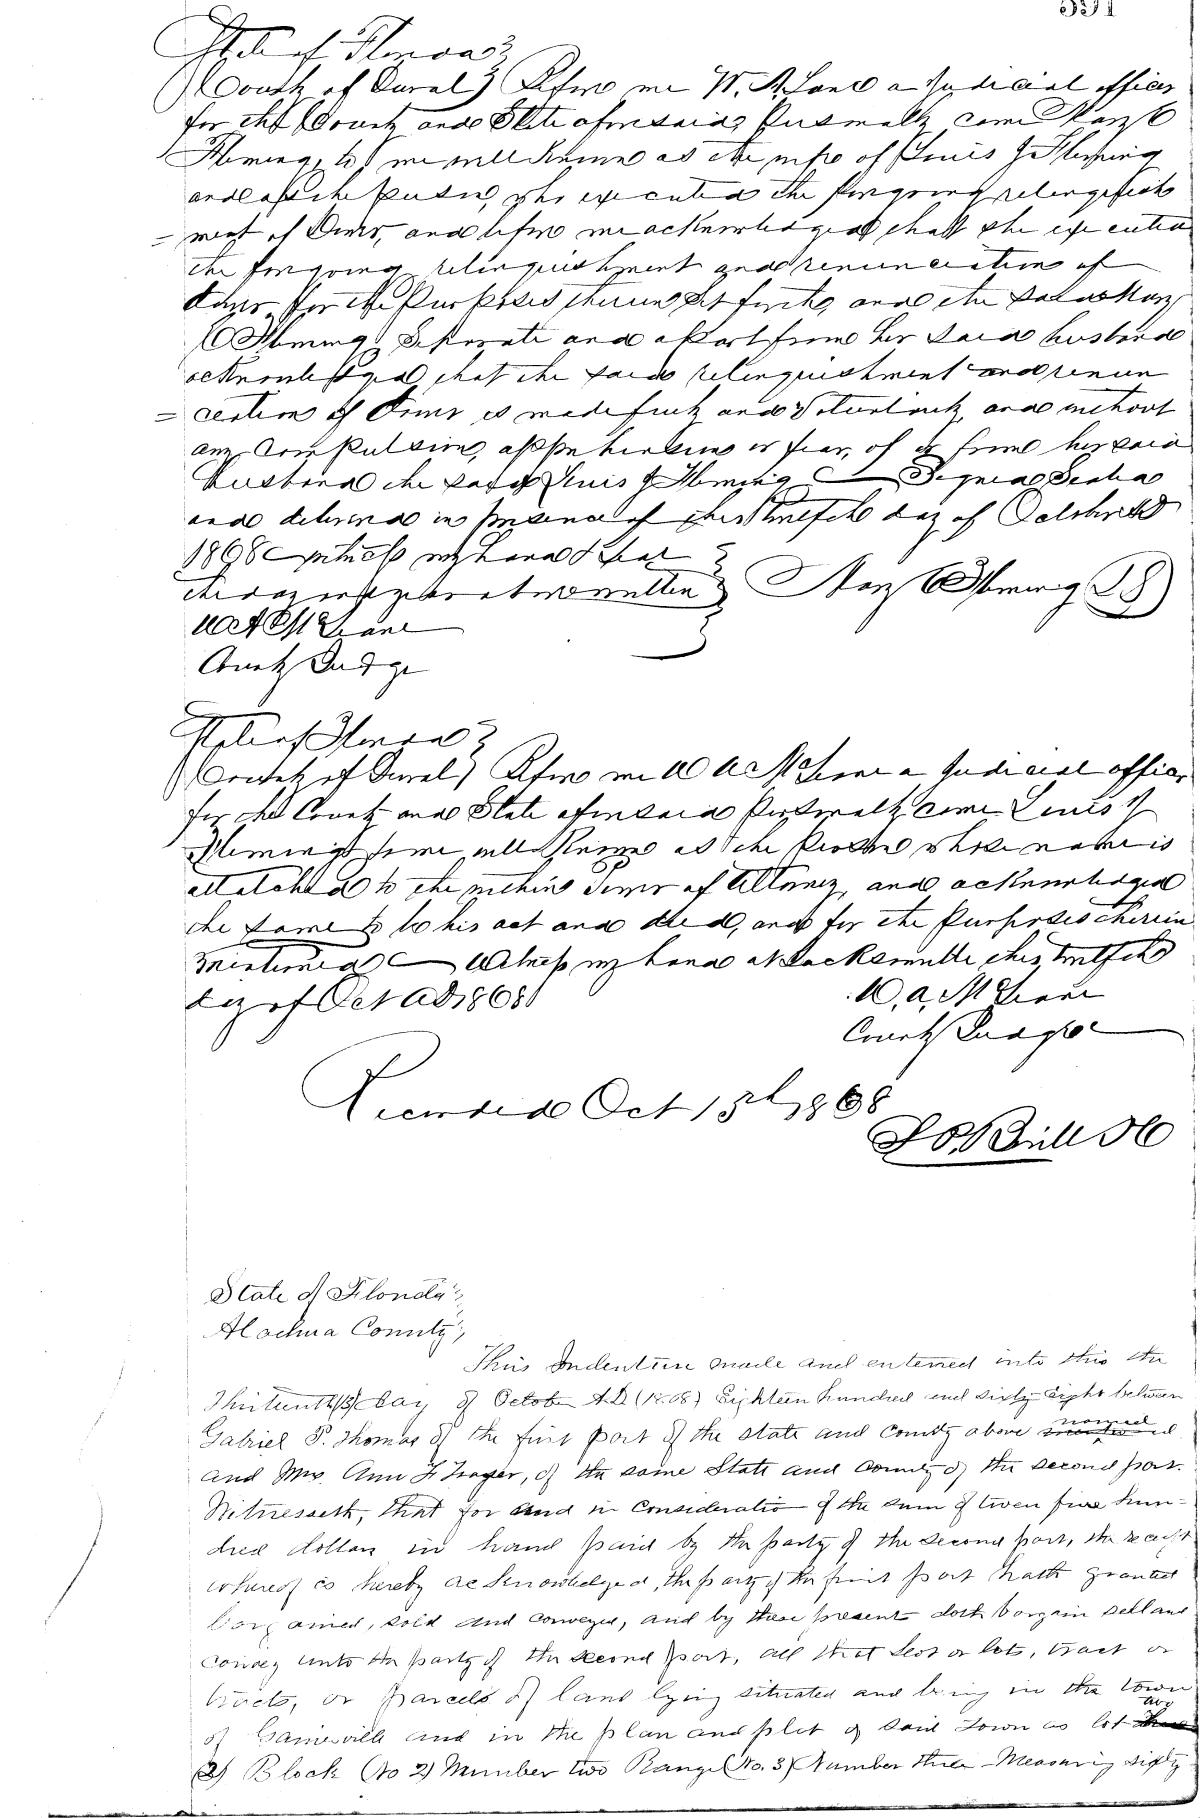 591
State of Florida
County of Duval Before me W. A. McLane a Judicial officer
for the County and State aforesaid, Personally came Mary C
Fleming, to me well known as the wife of Louis J Fleming
and as the person who executed the foregoing relinquish
= ment of Dower, and before me acknowledged that she executed
the foregoing relinquishment and renunciation of
dower for the Purposes therein set forth, and the said Mary
C Fleming Separate and apart from her said husband
acknowledged that the said relinquishment and renun
= ciation of dower is made freely and voluntarily, and without
any Compulsion, apprehension or fear, of or from her said
husband the said Louis J Fleming Signed Sealed
and delivered in presence of this twelfth day of October AD
1868 Witness my hand & seal
the day and year above written Mary C Fleming LS
W A McLane
County Judge
State of Florida
County of Duval Before me W A McLane a Judicial officer
for the County and State aforesaid Personally came Louis J
Fleming to me well known as the person whose name is
attatched to the within Power of Attorney, and acknowledged
the same to be his act and deed, and for the Purposes therein
mentioned Witness my hand at Jacksonville this twelfth
day of Oct AD 1868
W. A. McLane
County Judge
Recorded Oct 13th 1868
State of Florida
Alachua County
This Indenture made and entered into this the
Thirteenth (13) day of October A.D. (1868) Eighteen hundred and sixty eight between
Gabriel P. Thomas of the first part of the state and county above named
and Mrs. Ann F. Trager, of the same State and County of the second part.
Witnesseth, that for and in Consideratio of the sum of twen five hun-
dred dollars in hand paid by the party of the second part, the receipt
whereof is hereby acknowledged, the party of the first part hath granted
bargained, sold and conveyed, and by these presents doth bargain sell and
convey unto the party of the second part, all that lot or lots, tract or
tracts, or parcels of land lying situated and being in the town
of Gainesville and in the plan and plot of said Town as lot two
(2) Block (No 2) Number two Range (No. 3) Number three - Measuring sixty